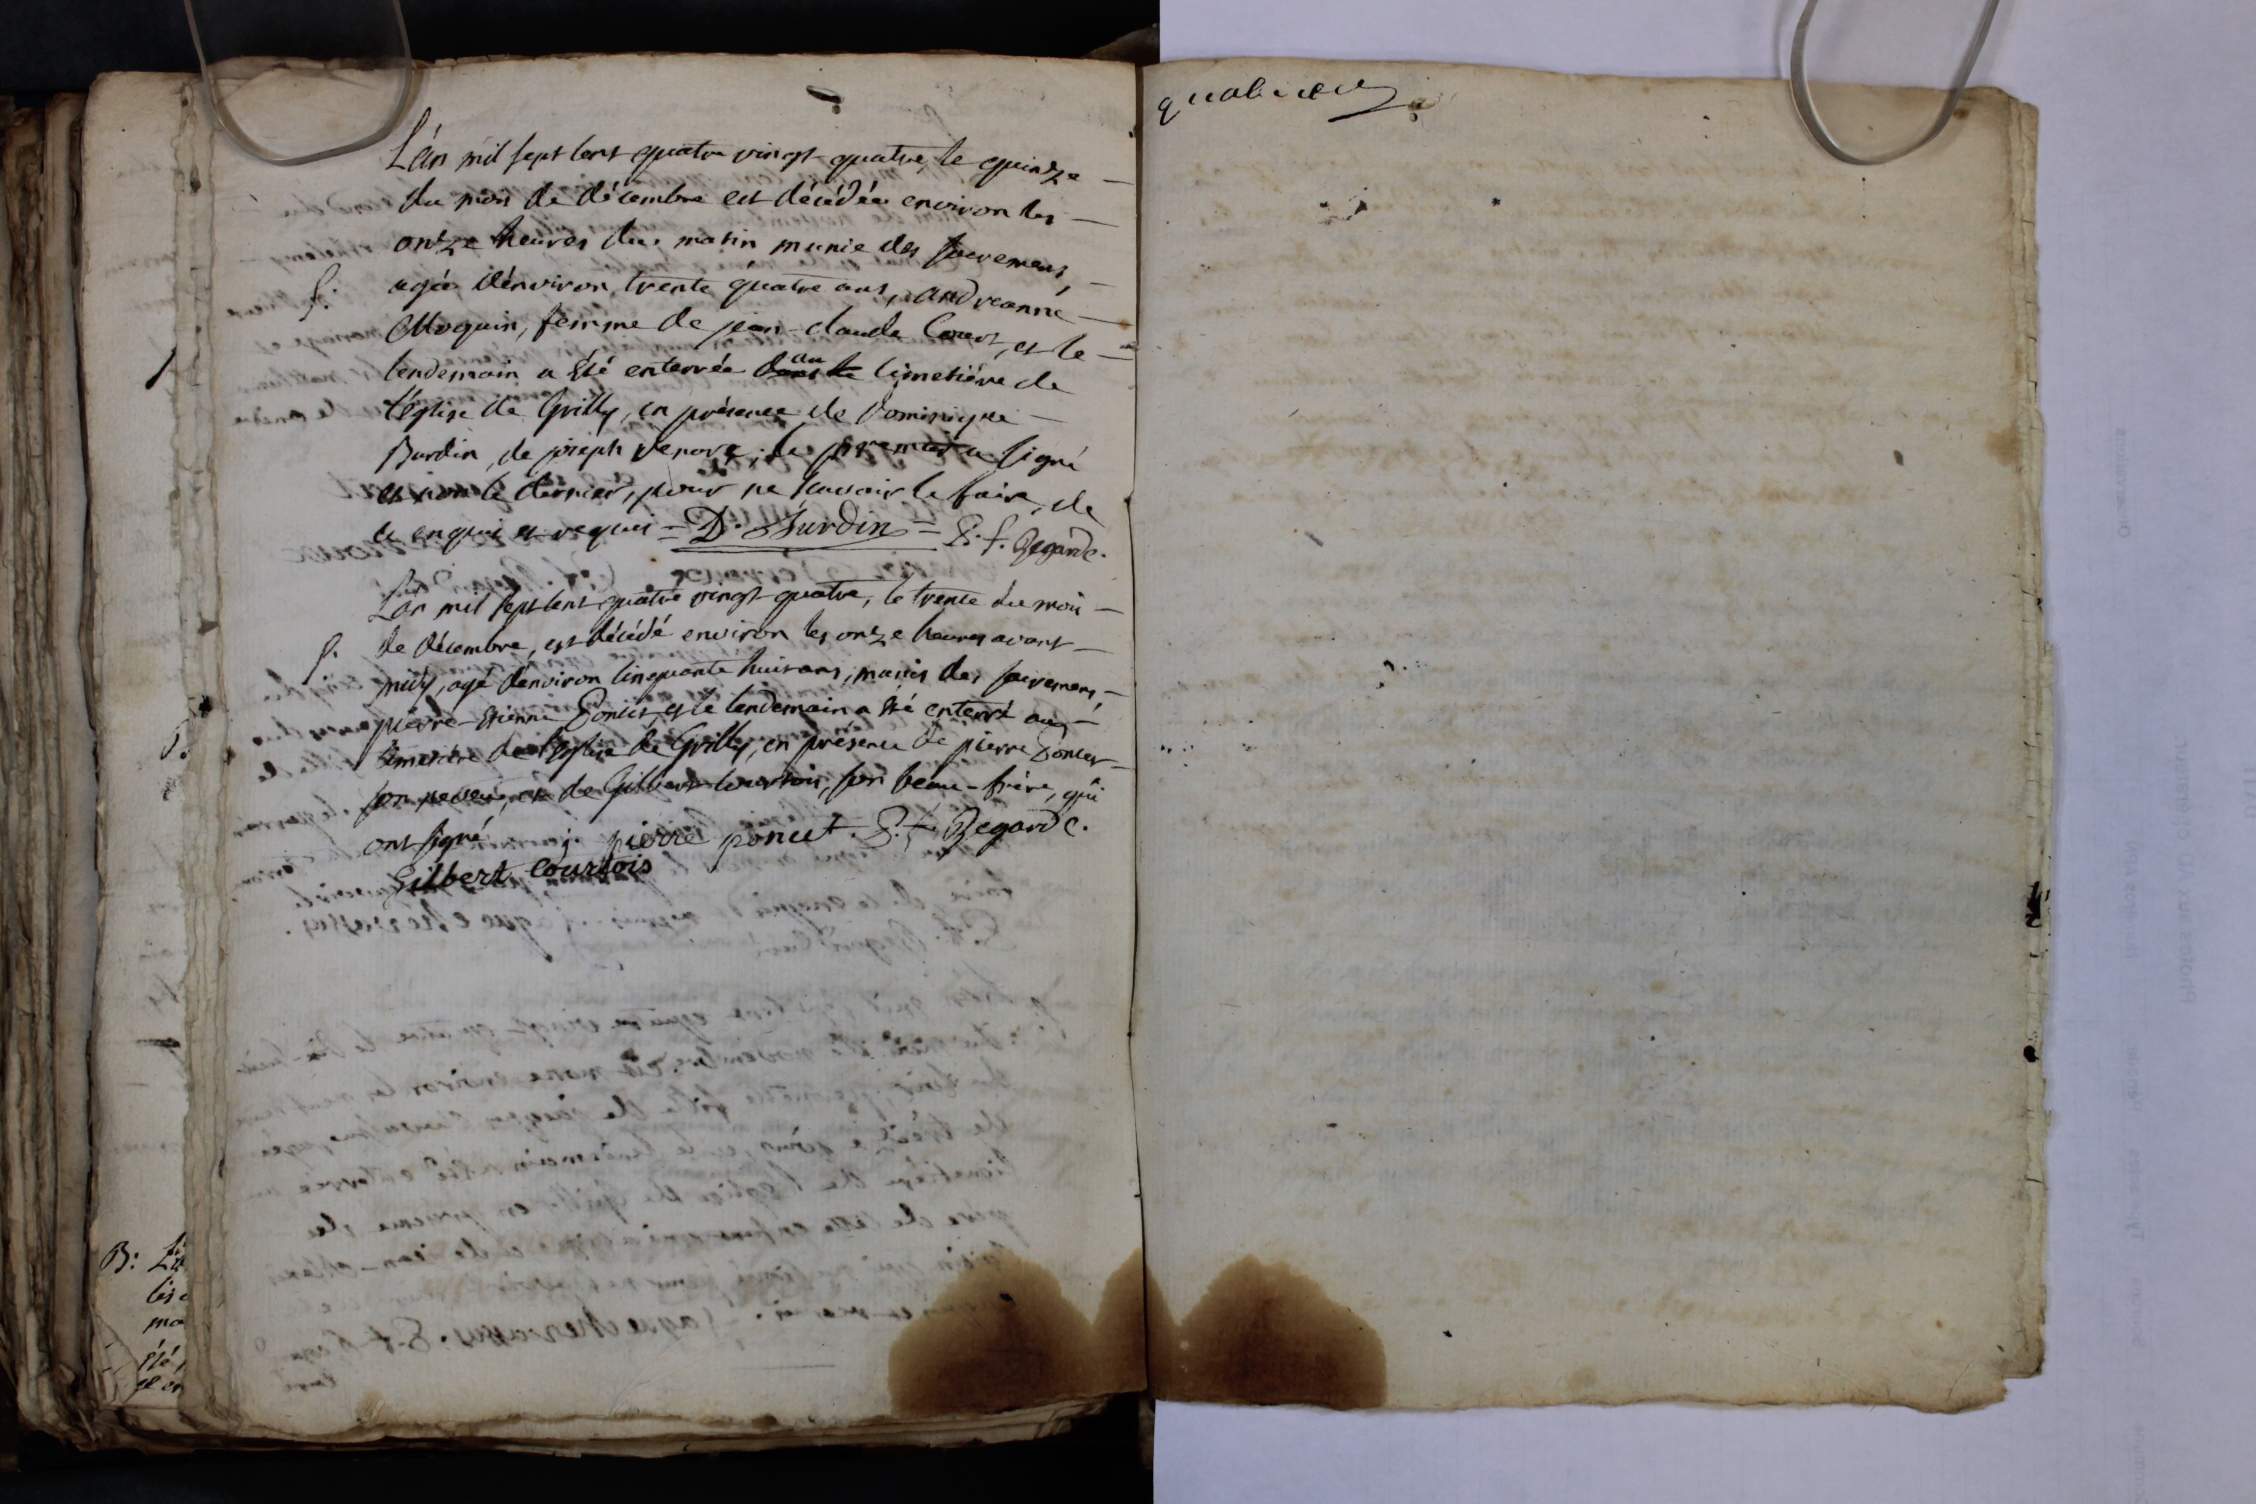 L'an mil sept cent quatre vingt quatre, le quinze
du mois de décembre est décédée environ les
onze heures du matin munie des sacremens,
S. agée d'environ trente quatre ans, andreanne
Moquin, femme de jean-claude et le
lendemain a été enterrée dans le au cimetiére de
l'église de Grilly, en présence de Dominique
Burdin, de joseph le premier a signé
et non le dernier, pour ne sçavoir le faire, de
ce enquis et requis = D. Burdin = E. f. Regard c.
L'an mil sept cent quatre vingt quatre, le trente du mois
S. de décembre, est décédé environ les onze heures avant
midy, agé d'environ cinquante huit ans, munis des sacremens,
pierre-Etienne Poncet, et le lendemain a été enterré au
cimetiére de l'église de Grilly, en présence de pierre Poncet
son neveu, et de Gilbert Courtois, son beau-frére, qui
ont signé. pierre poncet. E. f. Regard c.
Gilbert Courtois
B: